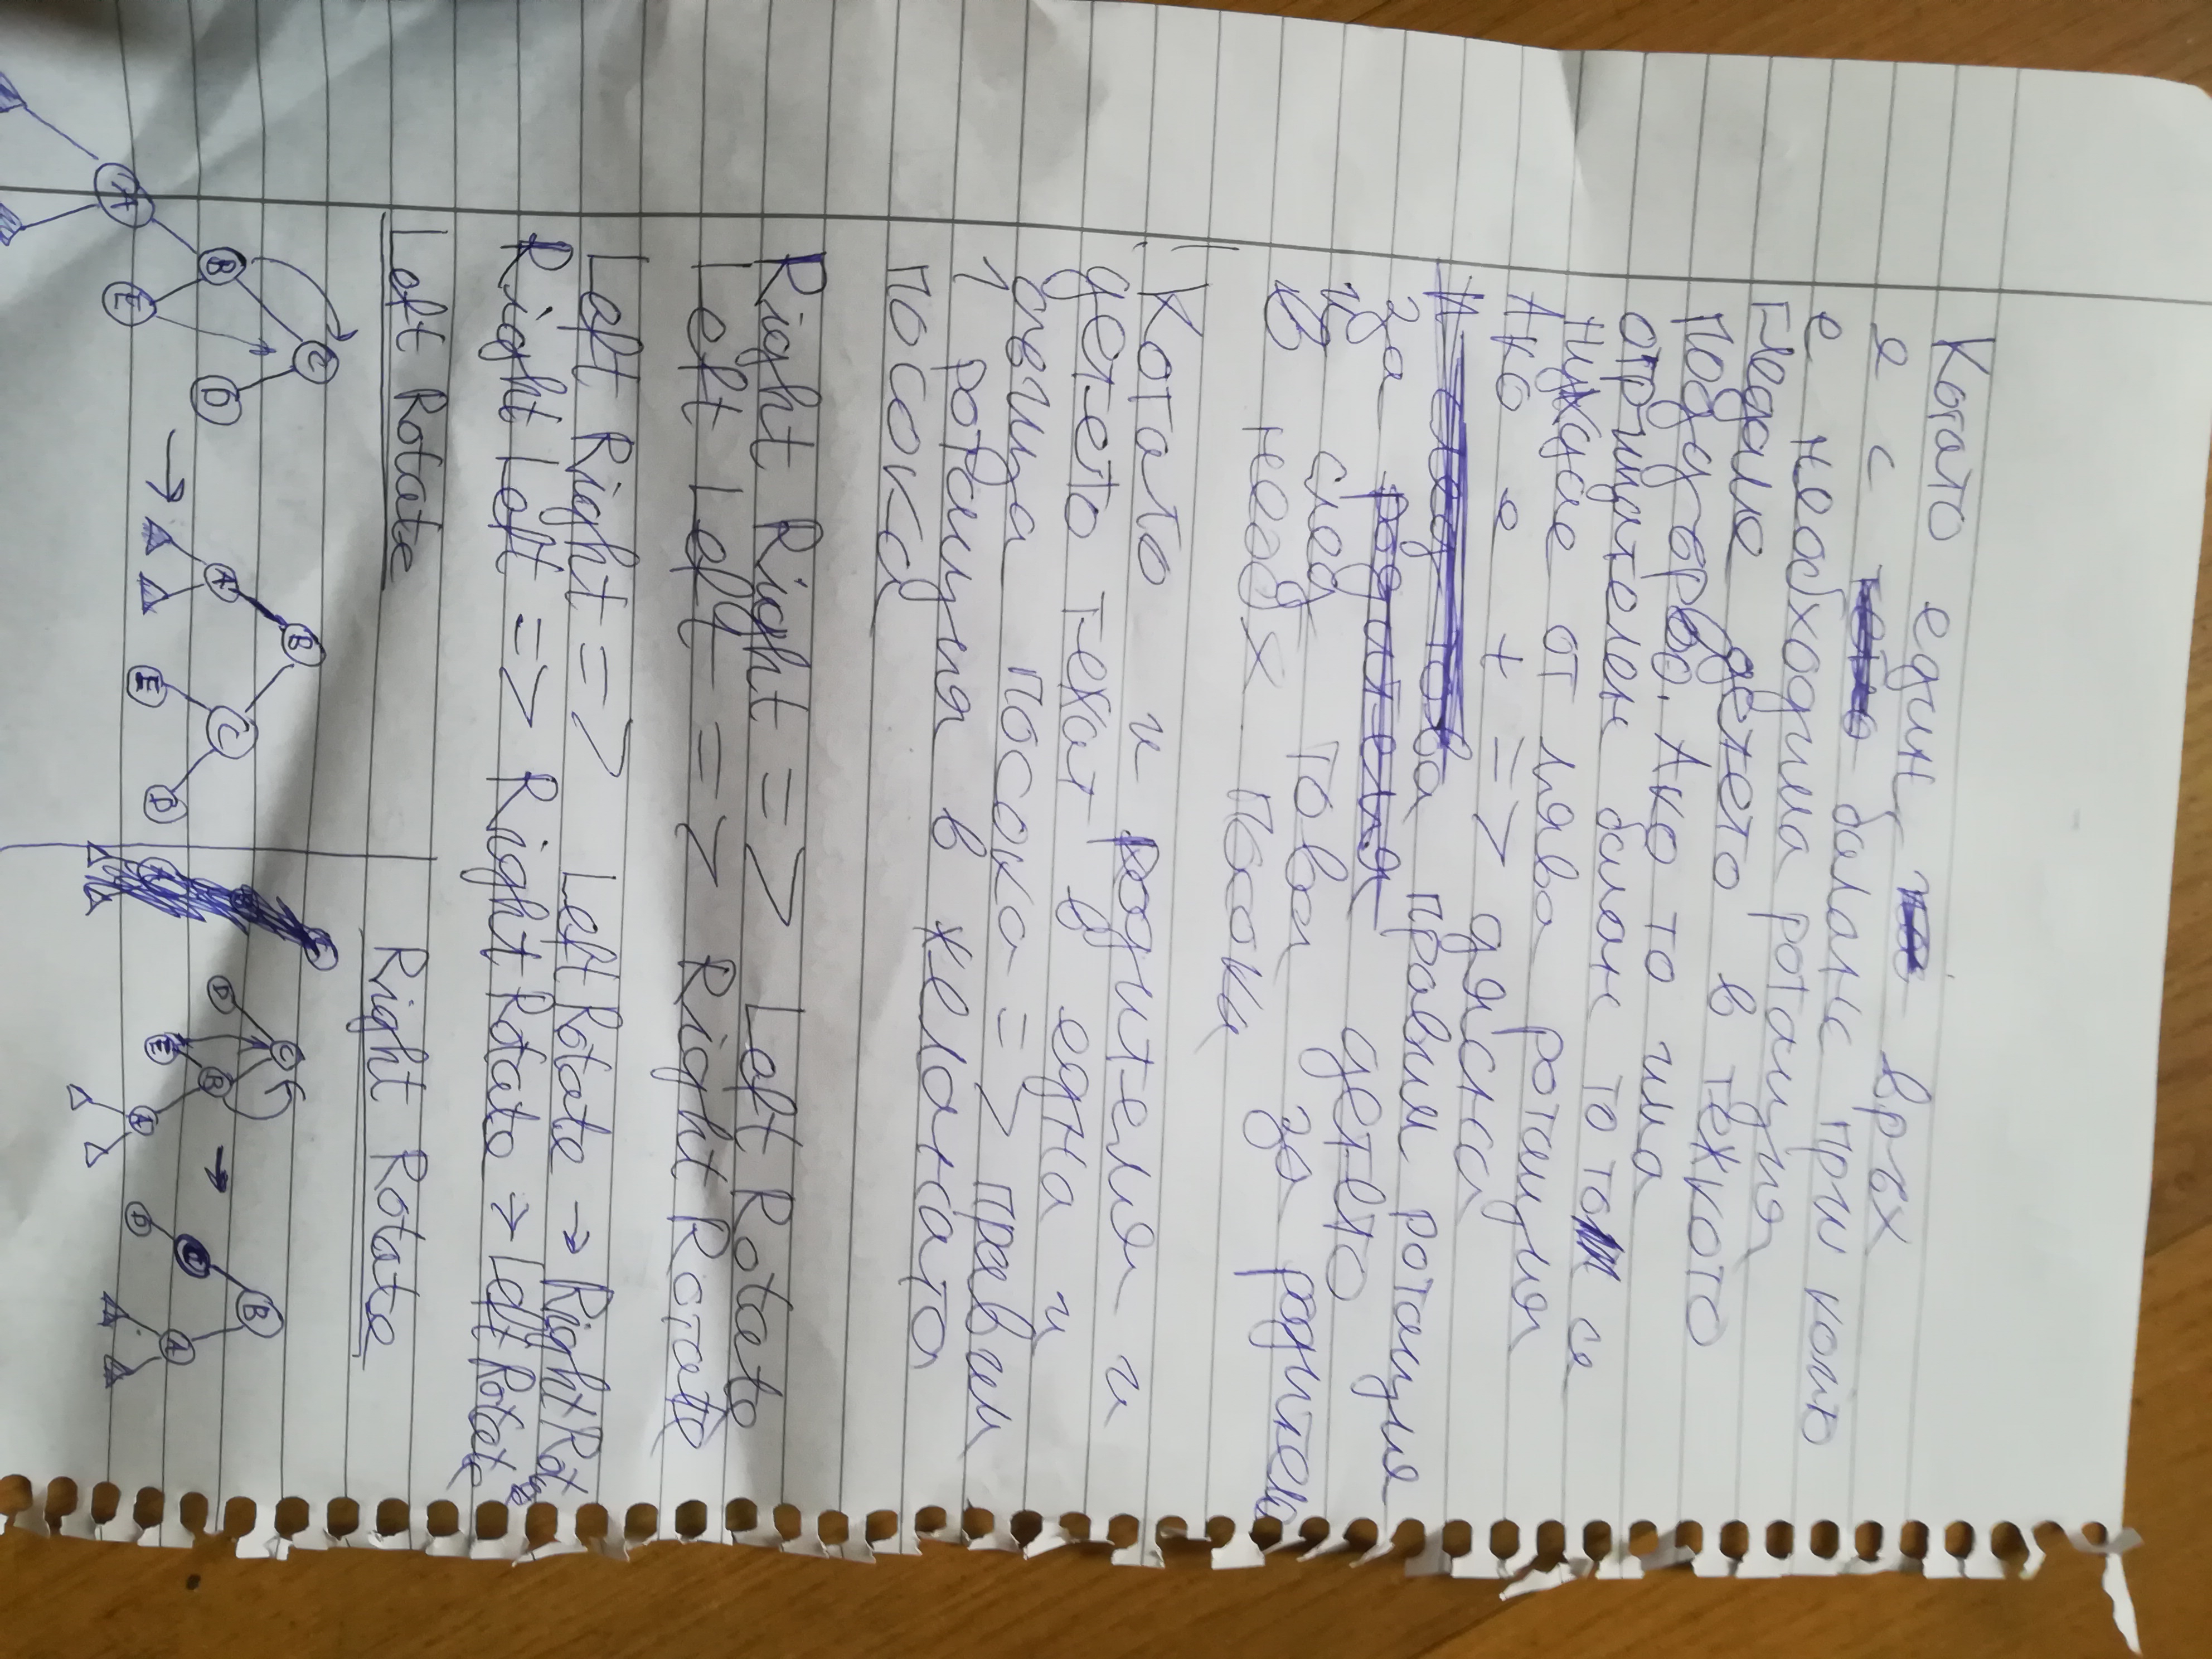 Когато един връх
е с баланс при който
е необходима ротация
гледаме детето в тежкото
поддърво. Ако то има
отрицателен баланс то то се
нуждае от лява ротация
Ако е + => дясна
И след това правим ротация
за родителя детето
и след това за родителя
в неговата посока
! Когато и родителя и
детето тежат в една и
съща посока => правим
1 ротация в желаната
посока
Right Right => Left Rotate
Left Left => Right Rotate
Left Right => Left Rotate → Right Rotate
Right Left => Right Rotate → Left Rotate
Left Rotate
Right Rotate
A B C D E → A B C D E
D C E B A → D C B A